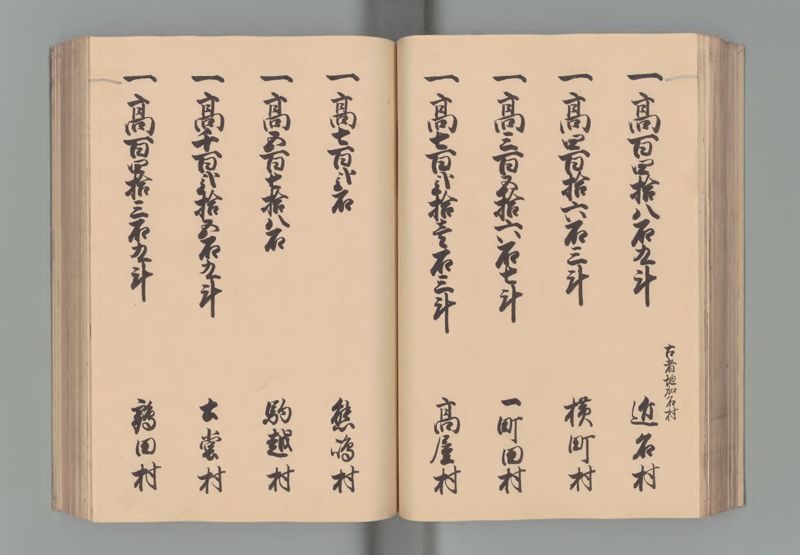 一高百四拾八石九斗
古者地加石村
近名村
一高四百拾六石三斗
横町村
一高三百五拾六石七斗
一町田村
一高七百弐拾壱石三斗
高屋村
一高七百弐石
熊嶋村
一高五百七拾八石
駒越村
一高千百弐拾五石九斗
村
一高百四拾三石九斗
鶴田村